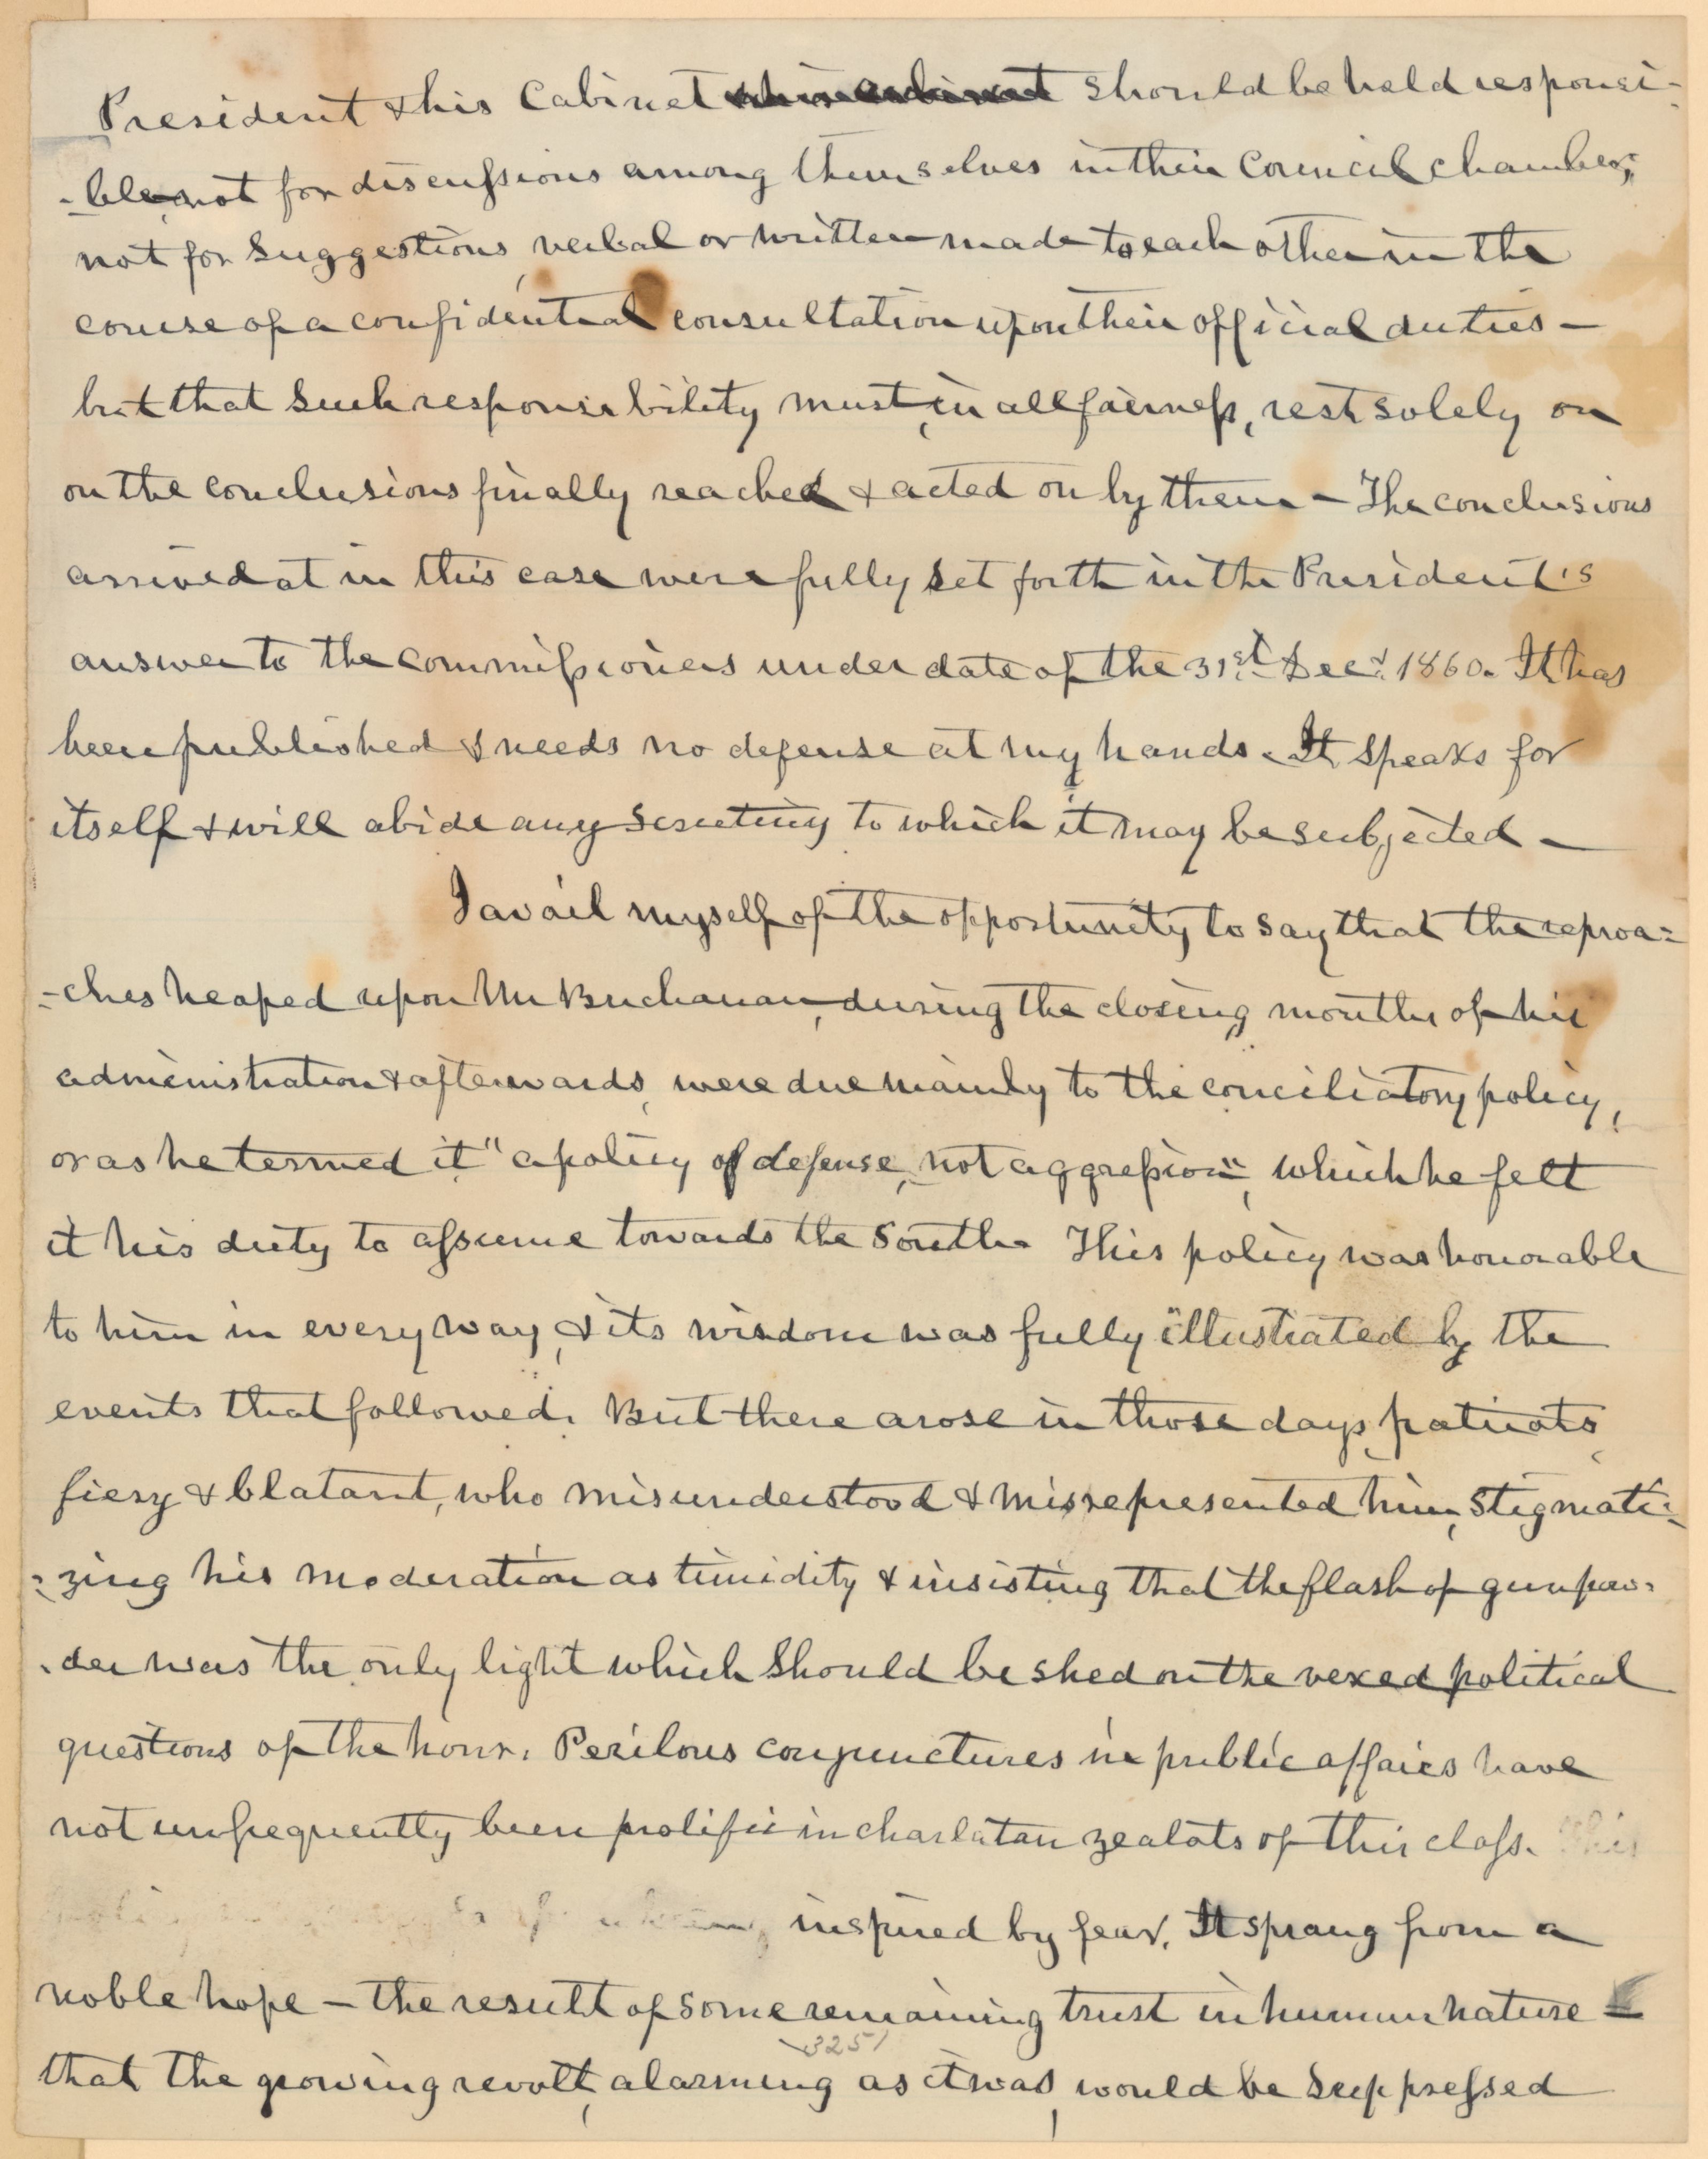 President & his Cabinet should be held responsi-
-ble, not for discussions among themselves in their Council chamber,
not for suggestions, verbal or written made to each other in the
course of a confidential consultation upon their official duties —
but that such responsibility must, in all fairness, rest solely on
on the conclusions finally reached & acted on by them — The conclusions
arrived at in this case were fully set forth in the President's
answer to the commissioners under date of the 31st Decr. 1860. It has
been published & needs no defense at my hands. It speaks for
itself & will abide any scrutiny to which it may be subjected —
I avail myself of the opportunity to say that the reproa=
=ches heaped upon Mr Buchanan, during the closing months of his
administration & afterwards, were due mainly to the conciliatory policy,
or as he termed it "a policy of defense, not aggression", which he felt
it his duty to assume towards the South. This policy was honorable
to him in every way, & its wisdom was fully illustrated by the
events that followed. But there arose in those days, patriots,
fiery & blatant, who misunderstood & misrepresented him, stigmati=
=zing his moderation as timidity & insisting that the flash of gunpow-
-der was the only light which should be shed on the vexed political
questions of the hour. Perilous conjunctures in public affairs have
not unfrequently been prolific in charlatan zealots of this class. This
inspired by fear. It sprang from a
noble hope — the result of some remaining trust in human nature —
that the growing revolt, alarming as it was, would be suppressed
3251